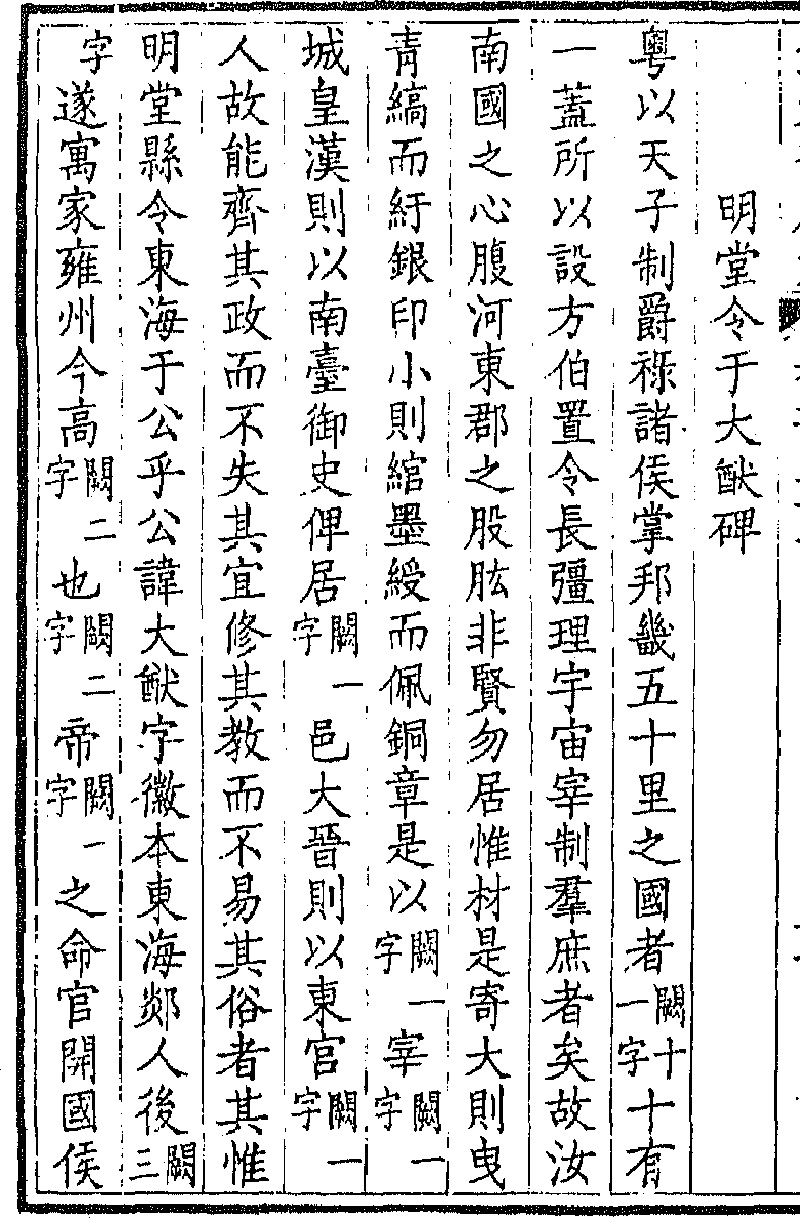 明堂令于大猷碑
粵以天子制爵祿諸侯掌邦畿五十里之國者闕十一字十有
一蓋所以設方伯置令長彊理宇宙宰制羣庶者矣故汝
南國之心腹河東郡之股肱非賢勿居惟材是寄大則曳
青縞而紆銀印小則綰墨綬而佩銅章是以闕一字宰闕一字
城皇漢則以南臺御史俾居闕一字邑大晉則以東宮闕一字
人故能齊其政而不失其宜修其教而不易其俗者其惟
明堂縣令東海于公乎公諱大猷字徽本東海郯人後闕三
字遂寓家雍州今高闕二字也闕二字帝闕一字之命官開國侯